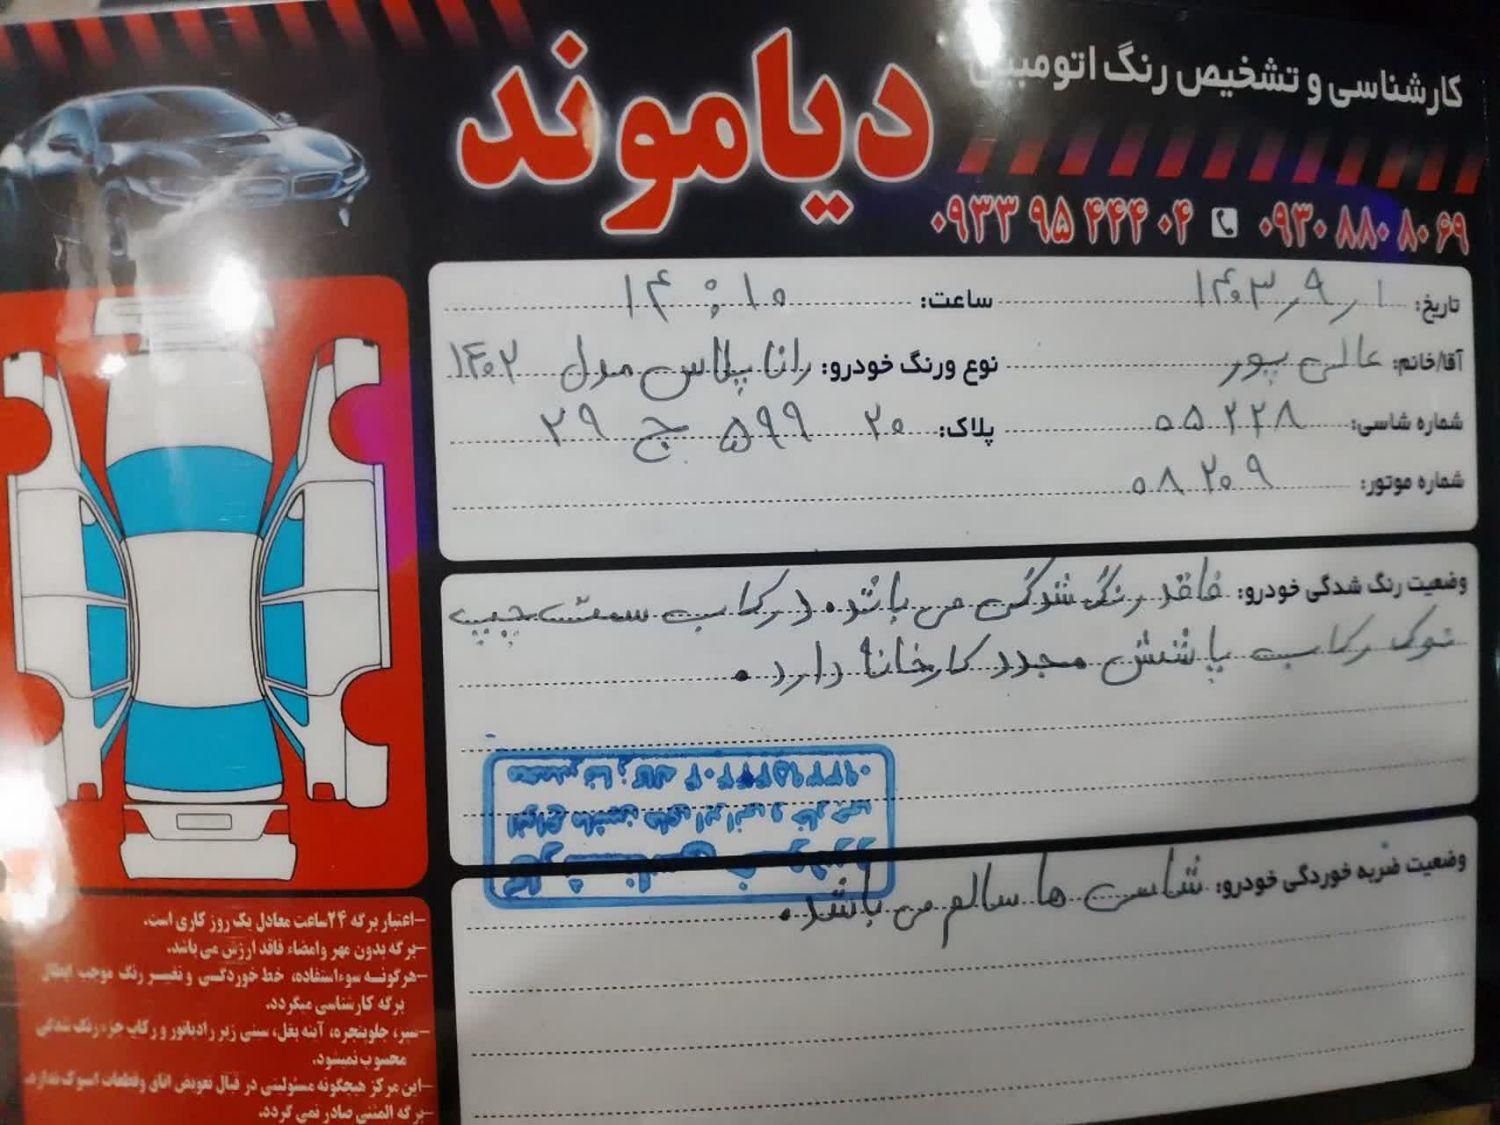 کارشناسی و تشخیص رنگ اتومبیل
دیاموند
۰۹۳۰ ۸۸۰ ۸۰ ۶۹
۰۹۳۳ ۹۵ ۴۴۴ ۰۴
تاریخ: ۱۴۰۳٫۹٫۱
ساعت: ۱۴:۱۰
آقا/خانم: عالی پور
نوع ورنگ خودرو: رانا پلاس مدل ۱۴۰۲
شماره شاسی: ۰۵۲۲۸
پلاک: ۲۰ ۵۹۹ ج ۲۹
شماره موتور: ۰۸۲۰۹
وضعیت رنگ شدگی خودرو: فاقد رنگ شدگی می باشد. در رکاب سمت چپ
نوک رکاب پاشش مجدد کارخانه دارد.
وضعیت ضربه خوردگی خودرو: شاسی ها سالم می باشد.
-اعتبار برگه ۲۴ساعت معادل یک روز کاری است.
-برگه بدون مهر وامضاء فاقد ارزش می باشد.
-هرگونه سوءاستفاده، خط خوردگی و تغییر رنگ موجب ابطال
برگه کارشناسی میگردد.
-سپر، جلوپنجره، آینه بغل، سینی زیر رادیاتور و رکاب جزء رنگ شدگی
محسوب نمیشود.
-این مرکز هیچگونه مسئولیتی در قبال تعویض اتاق وقطعات استوک ندارد.
-برگه المثنی صادر نمی گردد.